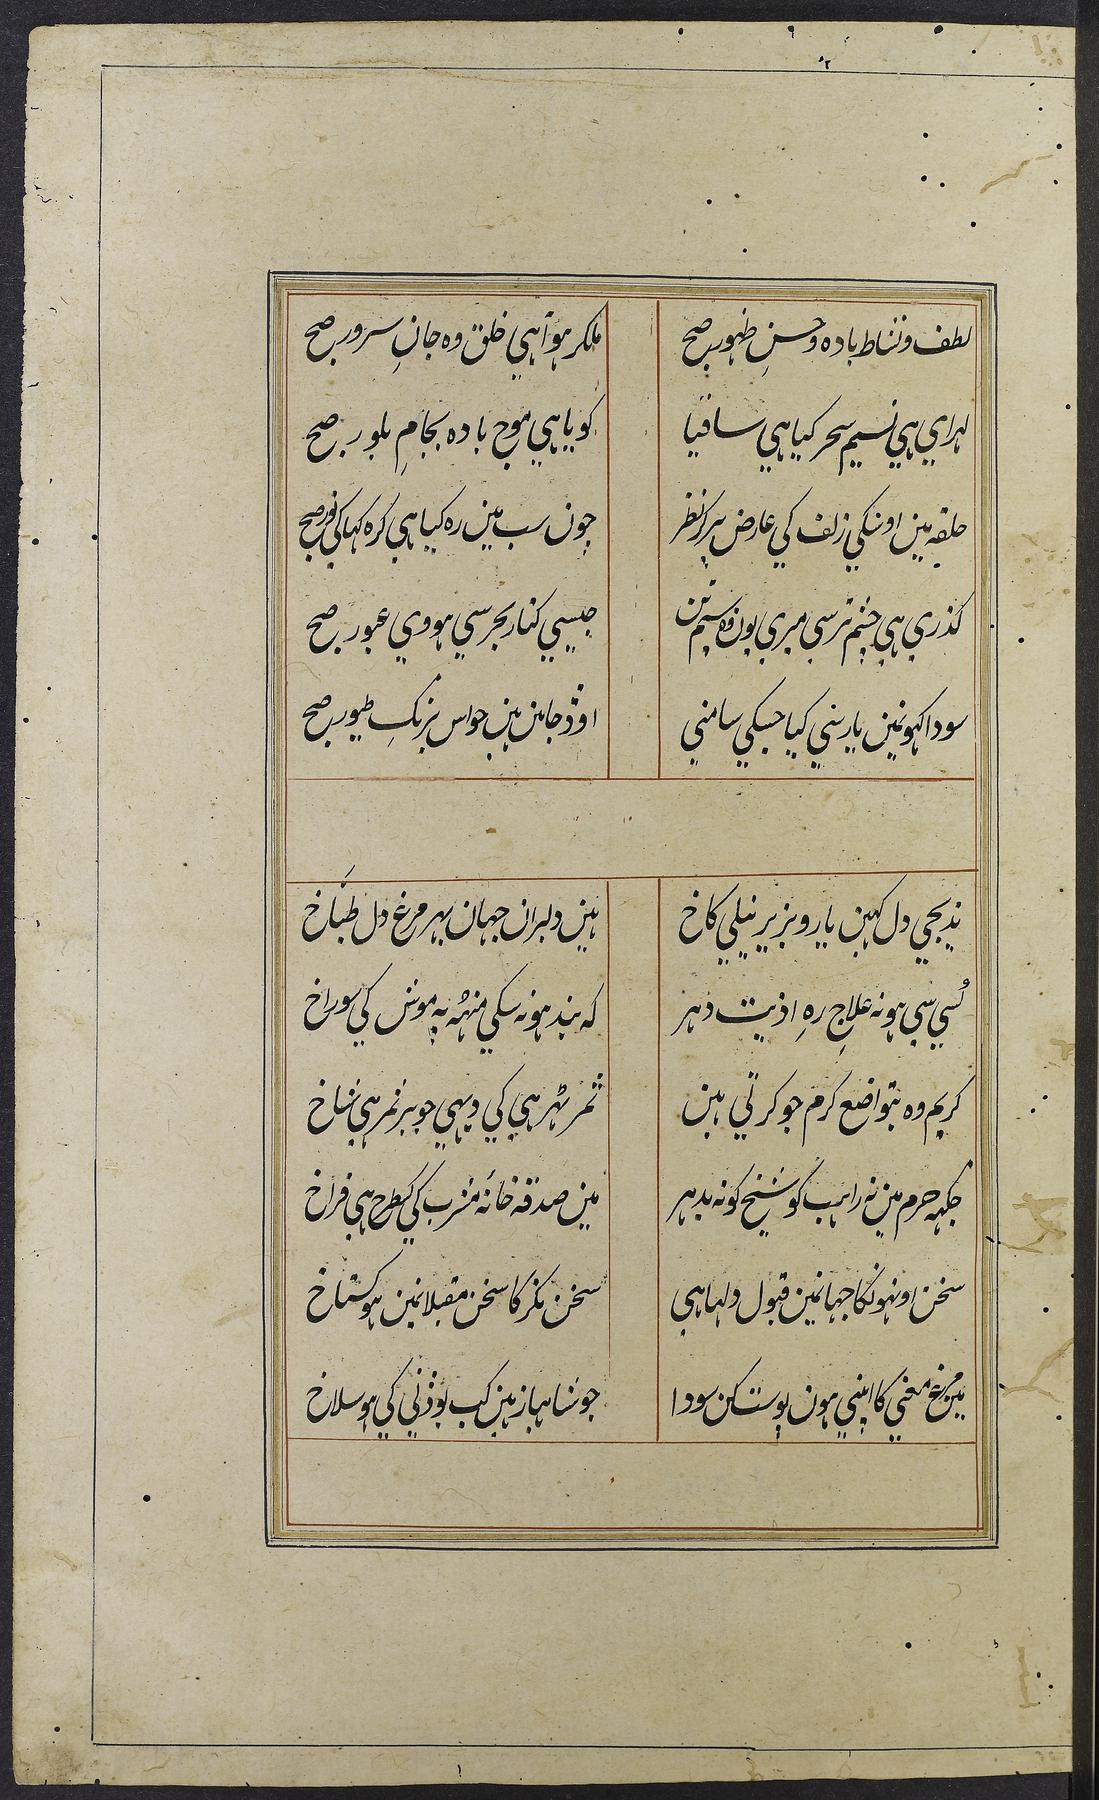 لطف و نشاط باده و حسنِ ظهورِ صبح
ملکر ہوا ہی خلق وہ جانِ سرورِ صبح
لہرای ہی نسیم سحر کیا ہی ساقیا
کویا ہی موج باده بجامِ بلورِ صبح
حلقہ مین اوسکی زلف کی عارض پر کر نظر
جون سب مین رہ کیا ہی کرہ کہاکی نور صبح
کذری ہی چشم تر سی میری یون وہ سیم تن
جیسی کنار بحر سی ہووی عبور صبح
سودا کہونمین یار سی کیا جسکی سامنی
اوڑ جاین ہین حواس برنکِ طیور صبح
ندیجی دل کہین یارو بزیر نیلی کاخ
ہین دلبران جہان بہر مرغ دل طباخ
کسی سی ہو نہ علاجِ رہِ اذیت دہر
کہ بند ہو نہ سکی منہہ پہ موش کی سوراخ
کریم وہ بتواضع کرم جو کرتی ہین
ثمر ہی کی وہی جو پر ثمر ہی شاخ
جکہہ حرم مین نہ راہب کو شیخ کو نہ بدیر
مین صدقہ خانۂ مشرب کی کسطرح ہی فراخ
سخن اونہونکا جہانمین قبول دلہا ہی
سخن نکر کا سخن مقبلانمین ہو کستاخ
مین مرغ معنی کا اپنی ہون پوست کن سودا
جو شاہباز ہین کب بوذنی کی ہو سلاخ